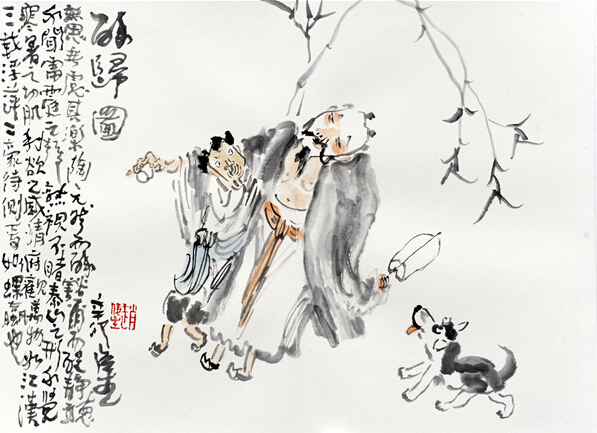 醉歸圖
無思無慮其樂陶陶兀然而醉豁爾而醒靜聽
不聞雷霆之聲熟視不睹泰山之形不覺
寒暑之切肌利欲之感情俯觀萬物如江漢
之載浮萍二豪侍側焉如螺蠃也
辛卯